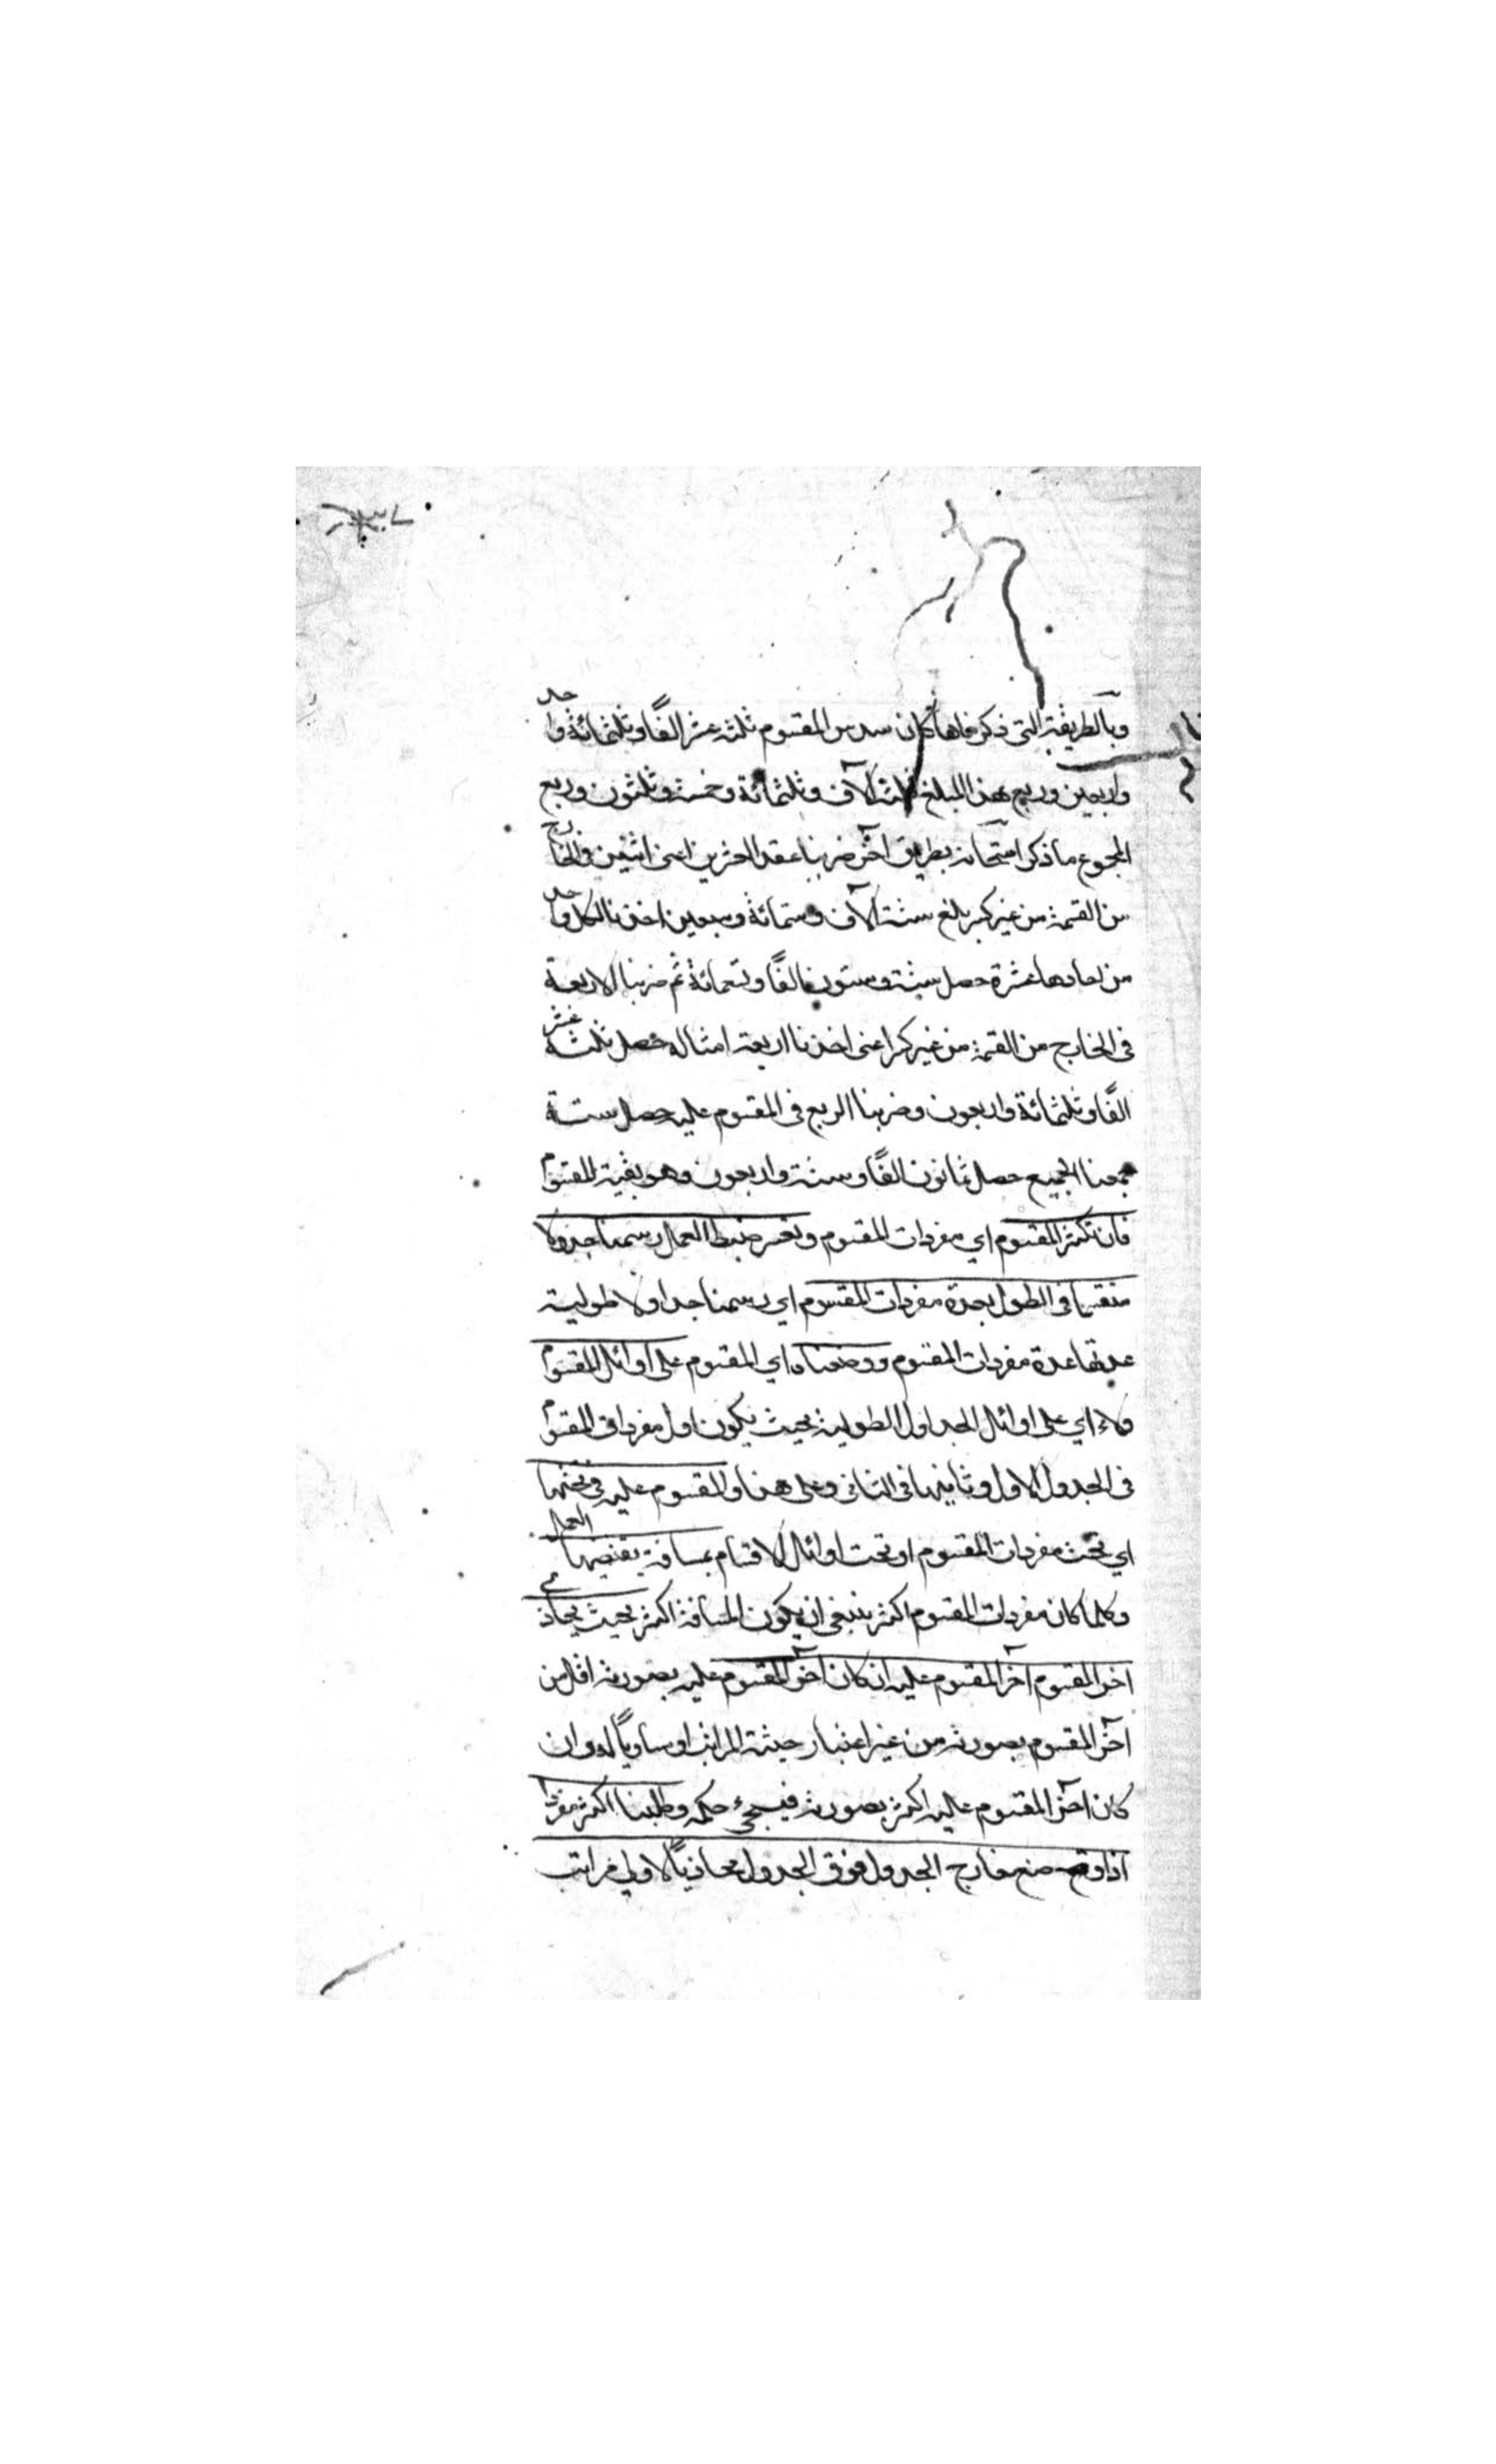 وبالطريقة التي ذكرناها كان سدس المقسوم ثلثة عشر الفًا وثلثمائة واحد
واربعين وربع هذا المبلغ ثلثة آلاف وثلثمائة وخمسة وثلثون وربع
المجموع ما ذكر امتحانه بطريق آخر ضربنا عقد العشرين اعنى اثنين في الخارج
من القسمة من غير كسر بلغ ستة آلاف وستمائة وسبعين اخذنا لكل واحد
من احادها عشرة حصل ستة وستون الفًا وسبعمائة ثم ضربنا الاربعة
في الخارج من القسمة من غير كسر اعنى اخذنا اربعة امثاله حصل ثلثة عشر
الفًا وثلثمائة واربعون وضربنا الربع في المقسوم عليه حصل ستة
جمعنا الجميع حصل ثمانون الفًا وستة واربعون وهو بقية المقسوم
فان تكثر المقسوم اي مفردات المقسوم وتعسر ضبط العمل رسمنا جدولا
منقسما في الطول بعدة مفردات المقسوم اي رسمنا جداولا طولية
عدتها عدة مفردات المقسوم ووضعناه اي المقسوم على اوائل المقسوم
ولاء اي على اوائل الجداول الطولية بحيث يكون اول مفردات المقسوم
في الجدول الاول وثانيها في الثاني وعلى هذا والمقسوم عليه في تحتها
اي تحت مفردات المقسوم او تحت اوائل الاقسام بمسافة يقتضيها العمل
وكلما كان مفردات المقسوم اكثر ينبغي ان يكون المسافة اكثر بحيث يحاذي
آخر المقسوم آخر المقسوم عليه ان كان آخر المقسوم عليه بصورته اقل من
آخر المقسوم بصورته من غير اعتبار حيثية المراتب او مساويًا له وان
كان آخر المقسوم عليه اكثر بصورته فسيجئ حكمه وطلبنا اكثر مفرد
اذا وضع خارج الجدول فوق الجدول محاذيًا لاولى مراتب